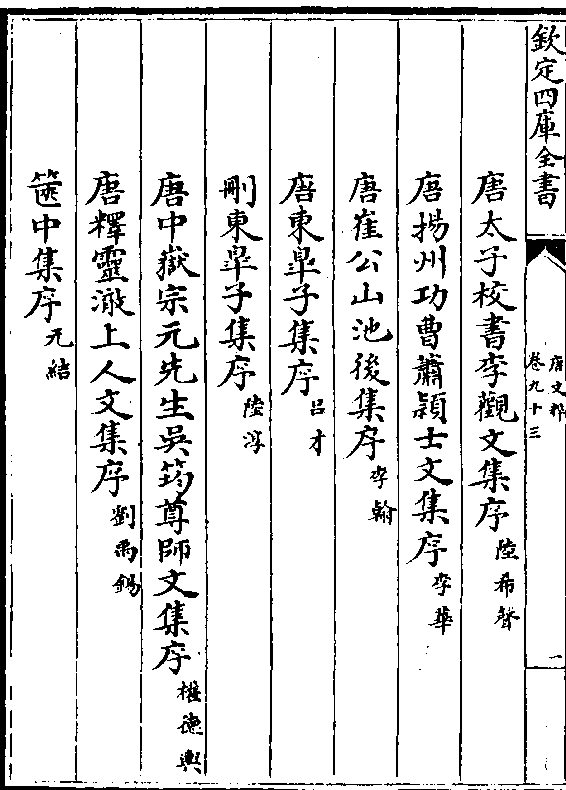 欽定四庫全書
唐文粹
卷九十三
一
唐太子校書李觀文集序 陸希聲
唐揚州功曹蕭頴士文集序 李華
唐崔公山池後集序 李翰
唐東臯子集序 呂才
刪東臯子集序 陸淳
唐中嶽宗元先生吳筠尊師文集序 權德輿
唐釋靈澈上人文集序 劉禹錫
篋中集序 元結